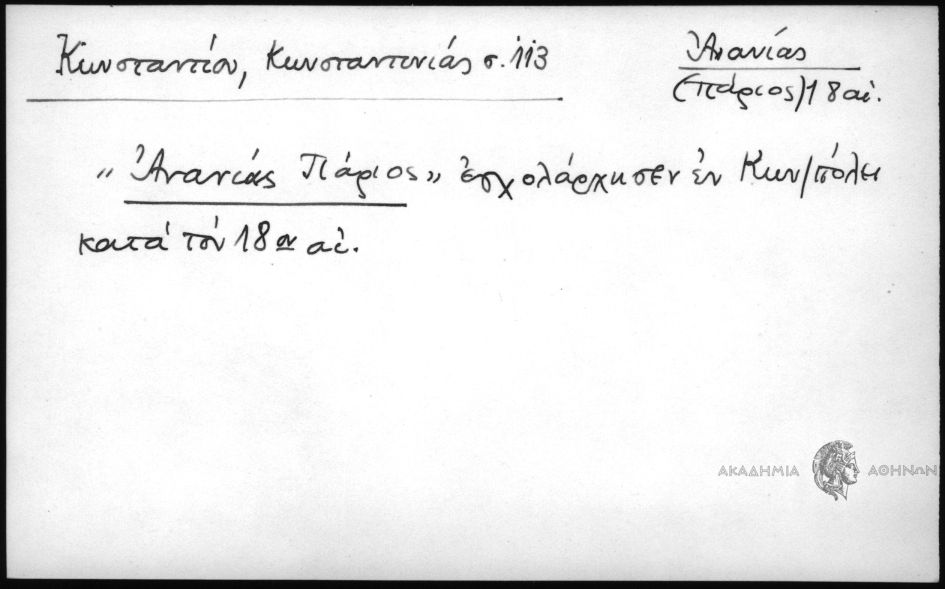 Κωνσταντίου, Κωνσταντινιάς σ. 113
Ἀνανίας
(Πάριος) 18 αἰ.
„Ἀνανίας Πάριος„ ἐσχολάρχησεν ἐν Κων/πόλει
κατά τόν 18ον αἰ.
ΑΚΑΔΗΜΙΑ ΑΘΗΝΩΝ